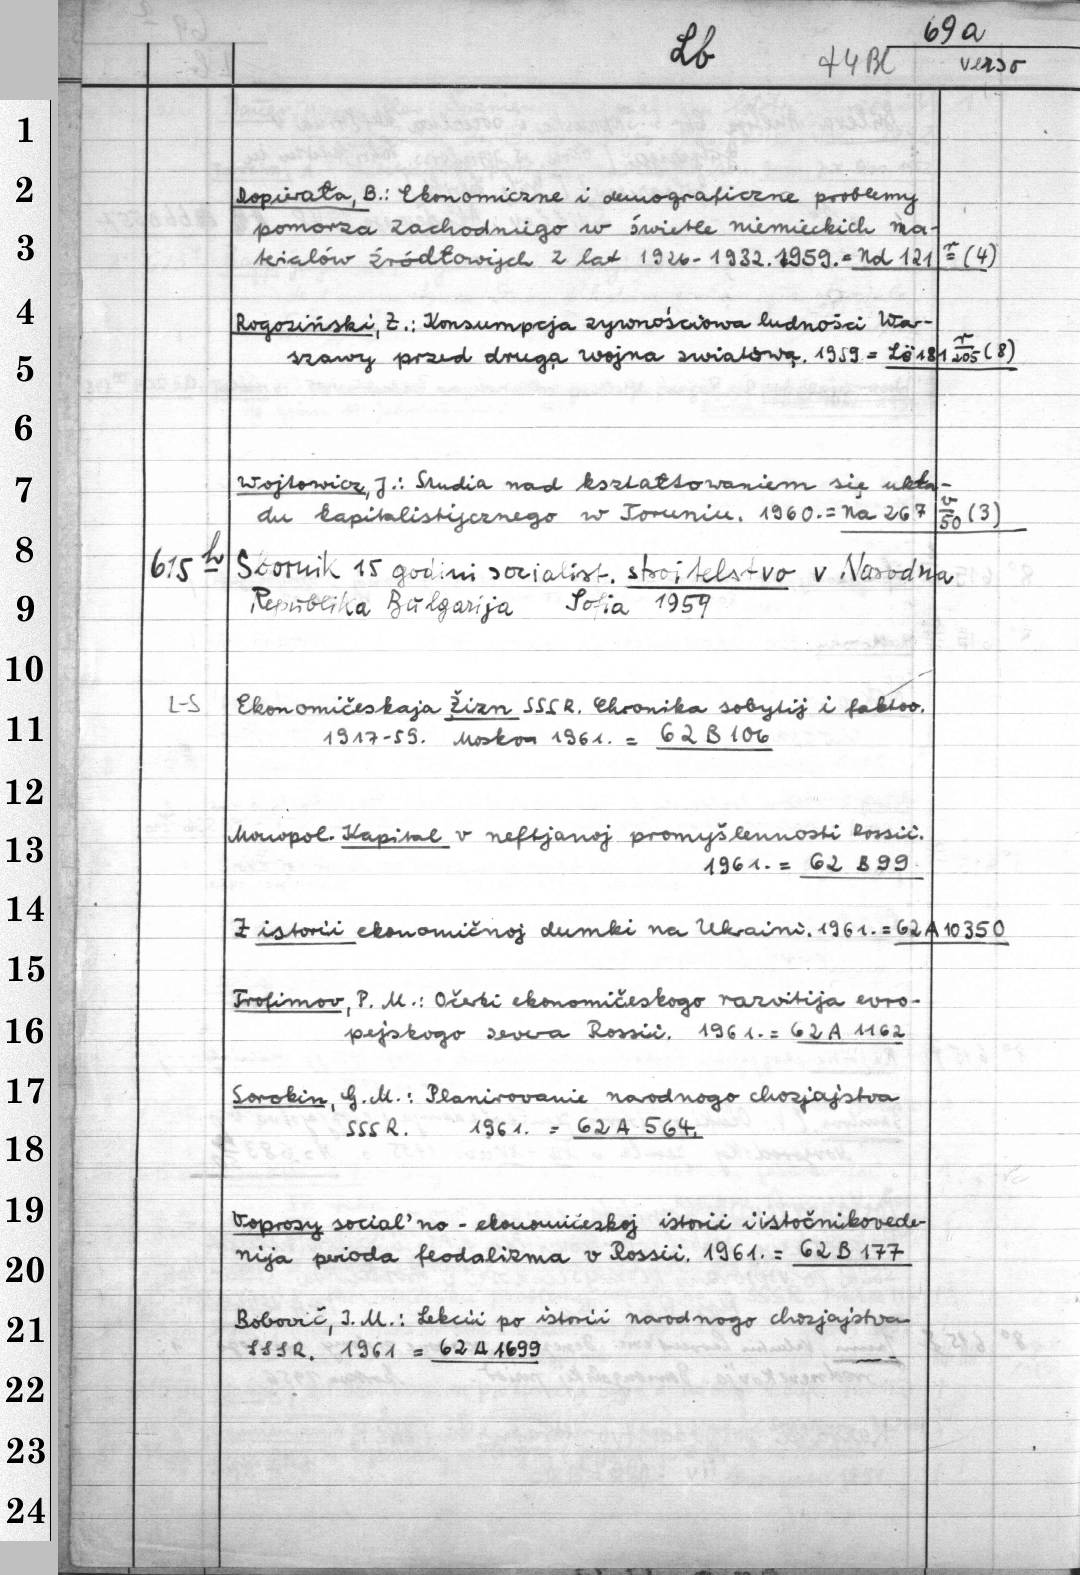 69a
Lb +4Bl verso
1
2
Dopierała, B.: Ekonomiczne i demograficzne problemy
pomorza zachodniego w świetle niemieckich ma-
3
teriałów źródłowijch z lat 1926-1932. 1959. = Nd 121 r = (4)
4
Rogoziński, Z.: Konsumpcja zywnościowa ludności War-
5
szawy przed drugą wojna swiatową. 1959 = Lö 181 r 205 (8)
6
7
Wojtowicz, J.: Studia nad kształtowaniem się ukła-
du kapitalistijcznego w Toruniu. 1960. = Na 267 v 50 (3)
8
615 h Sbornik 15 godini socialist. stroitelstvo v Narodna
9
Republika Bŭlgarija Sofia 1959
10
L-S Ekonomičeskaja Žizn SSSR. Chronika sobytij i faktov.
11
1917-59. Moskva 1961. = 62 B 106
12
13
Monopol. Kapital v neftjanoj promyšlennosti Rossii.
1961. = 62 B 99
14
Z istorii ekonomičnoj dumki na Ukraini. 1961. = 62 A 10350
15
Trofimov, P. M.: Očerki ekonomičeskogo razvitija evro-
16
pejskogo severa Rossii. 1961. = 62 A 1162
17
Sorokin, G. M.: Planirovanie narodnogo chozjajstva
SSSR. 1961. = 62 A 564.
18
19
Voprosy social'no-ekonomičeskoj istorii i istočnikovede-
20
nija perioda feodalizma v Rossii. 1961. = 62 B 177
21
Bobovič, I. M.: Lekcii po istorii narodnogo chozjajstva
SSSR. 1961 = 62 A 1699
22
23
24